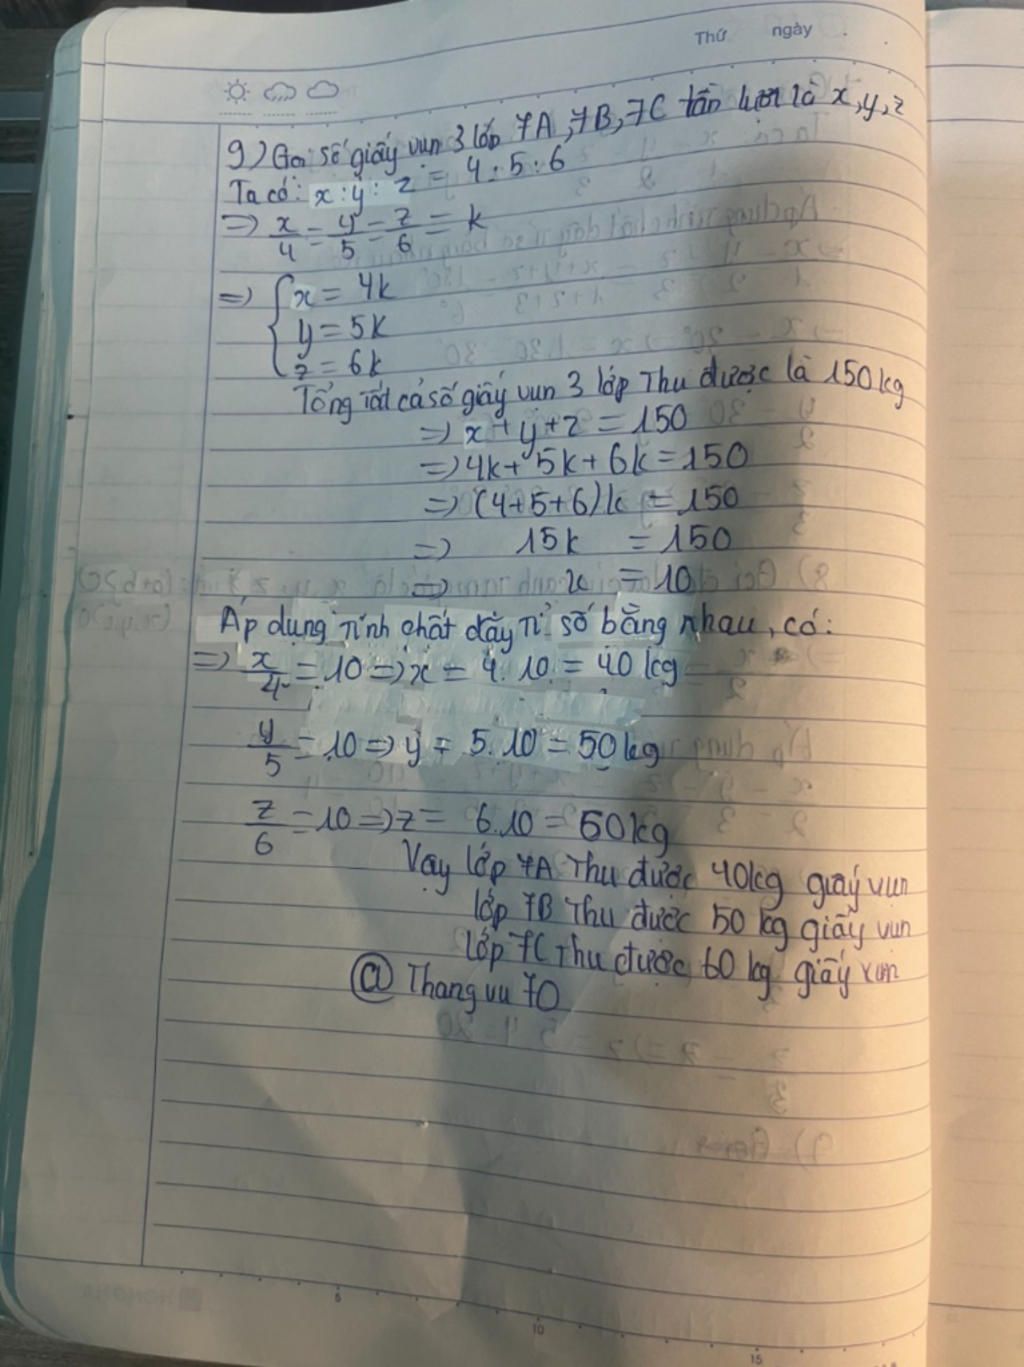 Thứ ngày
9) Gọi số giấy vụn 3 lớp 7A, 7B, 7C lần lượt là x, y, z
Ta có: x : y : z = 4 : 5 : 6
=> x/4 = y/5 = z/6 = k
=> { x = 4k
y = 5k
z = 6k
Tổng tất cả số giấy vụn 3 lớp Thu được là 150kg
=> x + y + z = 150
=> 4k + 5k + 6k = 150
=> (4+5+6)k = 150
=> 15k = 150
=> k = 10
Áp dụng tính chất dãy tỉ số bằng nhau, có:
=> x/4 = 10 => x = 4.10 = 40kg
y/5 = 10 => y = 5.10 = 50kg
z/6 = 10 => z = 6.10 = 60kg
Vậy lớp 7A Thu được 40kg giấy vụn
lớp 7B Thu được 50 kg giấy vụn
lớp 7C Thu được 60 kg giấy vụn
@ Thangvu70
5
10
15